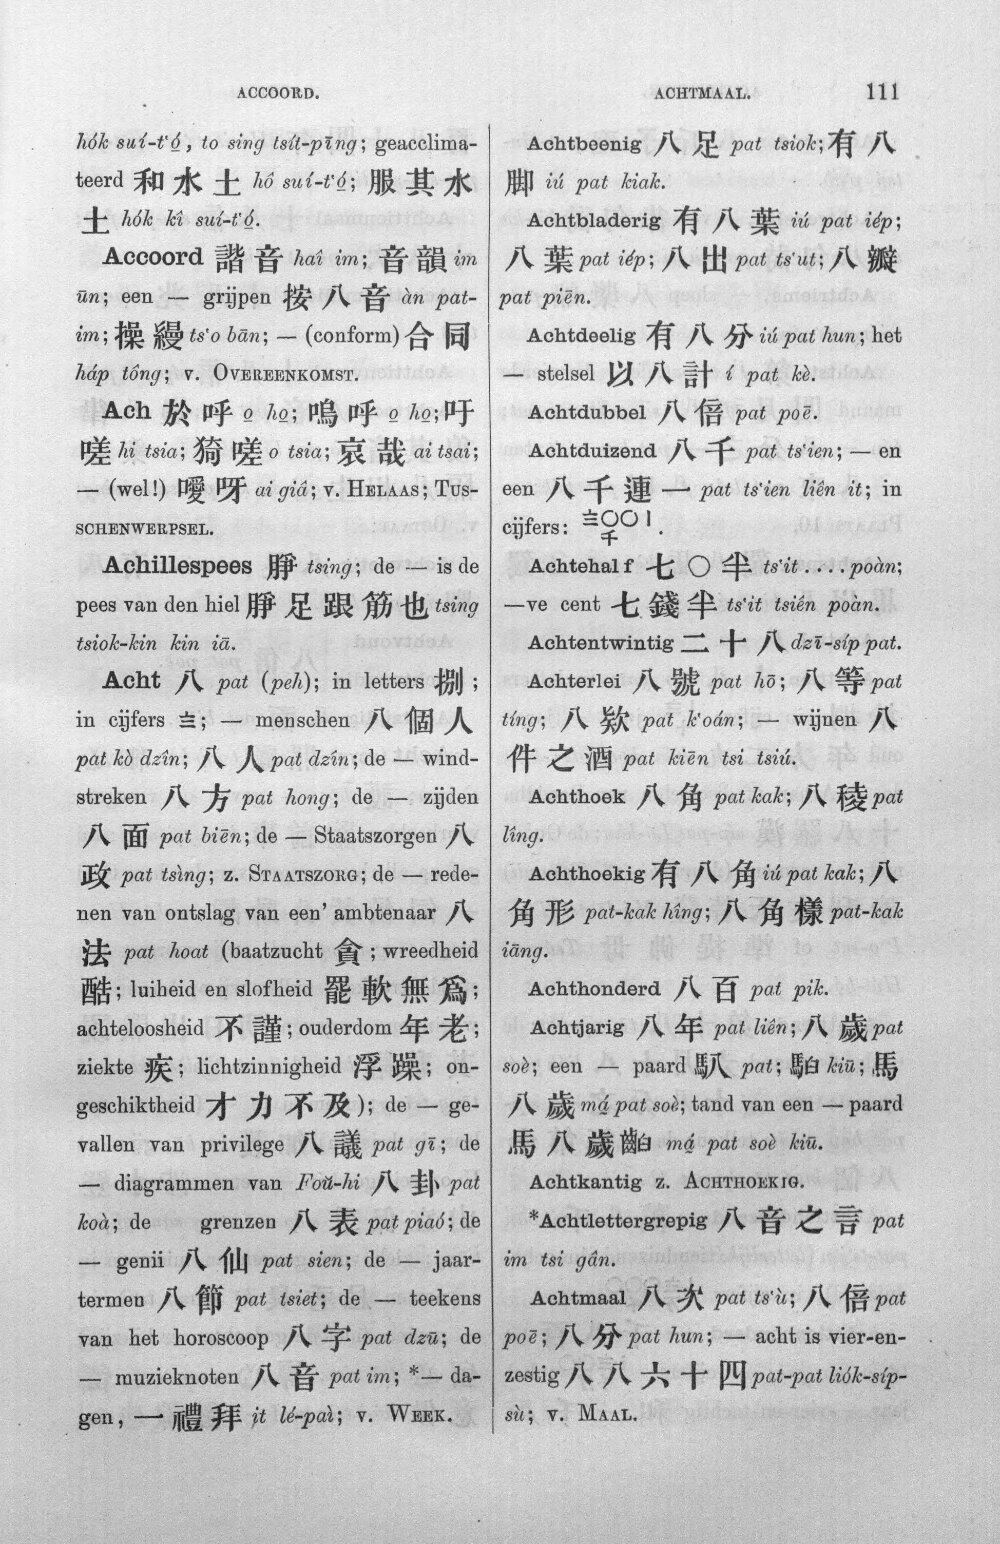 ACCOORD.
ACHTMAAL.
111
hók suí-t‘ó̤, to sing tsít-pīng; geacclima-
teerd 和水土 hô suí-t‘ó̤; 服其水
土 hók kî suí-t‘ó̤.
Accoord 諧音 haî im; 音韻 im
ūn; een — grijpen 按八音 àn pat-
im; 操縵 ts‘o bān; — (conform) 合同
háp tông; v. OVEREENKOMST.
Ach 於呼 o̤ ho̤; 嗚呼 o̤ ho̤; 吁
嗟 hi tsia; 猗嗟 o tsia; 哀哉 ai tsai;
— (wel!) 噯呀 ai giâ; v. HELAAS; TUS-
SCHENWERPSEL.
Achillespees 脝 tsing; de — is de
pees van den hiel 脝足跟筋也 tsing
tsiok-kin kin iā.
Acht 八 pat (peh); in letters 捌;
in cijfers 〨; — menschen 八個人
pat kò dzîn; 八人 pat dzîn; de — wind-
streken 八方 pat hong; de — zijden
八面 pat biēn; de — Staatszorgen 八
政 pat tsìng; z. STAATSZORG; de — rede-
nen van ontslag van een’ ambtenaar 八
法 pat hoat (baatzucht 貪; wreedheid
酷; luiheid en slofheid 罷軟無爲;
achteloosheid 不謹; ouderdom 年老;
ziekte 疾; lichtzinnigheid 浮躁; on-
geschiktheid 才力不及); de — ge-
vallen van privilege 八議 pat gī; de
— diagrammen van Foŭ-hi 八卦 pat
koà; de grenzen 八表 pat piaó; de
— genii 八仙 pat sien; de — jaar-
termen 八節 pat tsiet; de — teekens
van het horoscoop 八字 pat dzū; de
— muzieknoten 八音 pat im; *— da-
gen, 一禮拜 it lé-paì; v. WEEK.
Achtbeenig 八足 pat tsiok; 有八
脚 iú pat kiak.
Achtbladerig 有八葉 iú pat iép;
八葉 pat iép; 八出 pat ts‘ut; 八瓣
pat piēn.
Achtdeelig 有八分 iú pat hun; het
— stelsel 以八計 í pat kè.
Achtdubbel 八倍 pat poē.
Achtduizend 八千 pat ts‘ien; — en
een 八千連一 pat ts‘ien liên it; in
cijfers: 〨〇〇〡 .
千
Achtehalf 七〇半 ts‘it .... poàn;
—ve cent 七錢半 ts‘it tsiên poàn.
Achtentwintig 二十八 dzī-síp pat.
Achterlei 八號 pat hō; 八等 pat
tíng; 八欵 pat k‘oán; — wijnen 八
件之酒 pat kiēn tsi tsiú.
Achthoek 八角 pat kak; 八稜 pat
lîng.
Achthoekig 有八角 iú pat kak; 八
角形 pat-kak hîng; 八角樣 pat-kak
iāng.
Achthonderd 八百 pat pik.
Achtjarig 八年 pat liên; 八歲 pat
soè; een — paard 馴 pat; 𩢾 kiū; 馬
八歲 má̤ pat soè; tand van een — paard
馬八歲齨 má̤ pat soè kiū.
Achtkantig z. ACHTHOEKIG.
*Achtlettergrepig 八音之言 pat
im tsi gân.
Achtmaal 八次 pat ts‘ù; 八倍 pat
poē; 八分 pat hun; — acht is vier-en-
zestig 八八六十四 pat-pat liók-síp-
sù; v. MAAL.